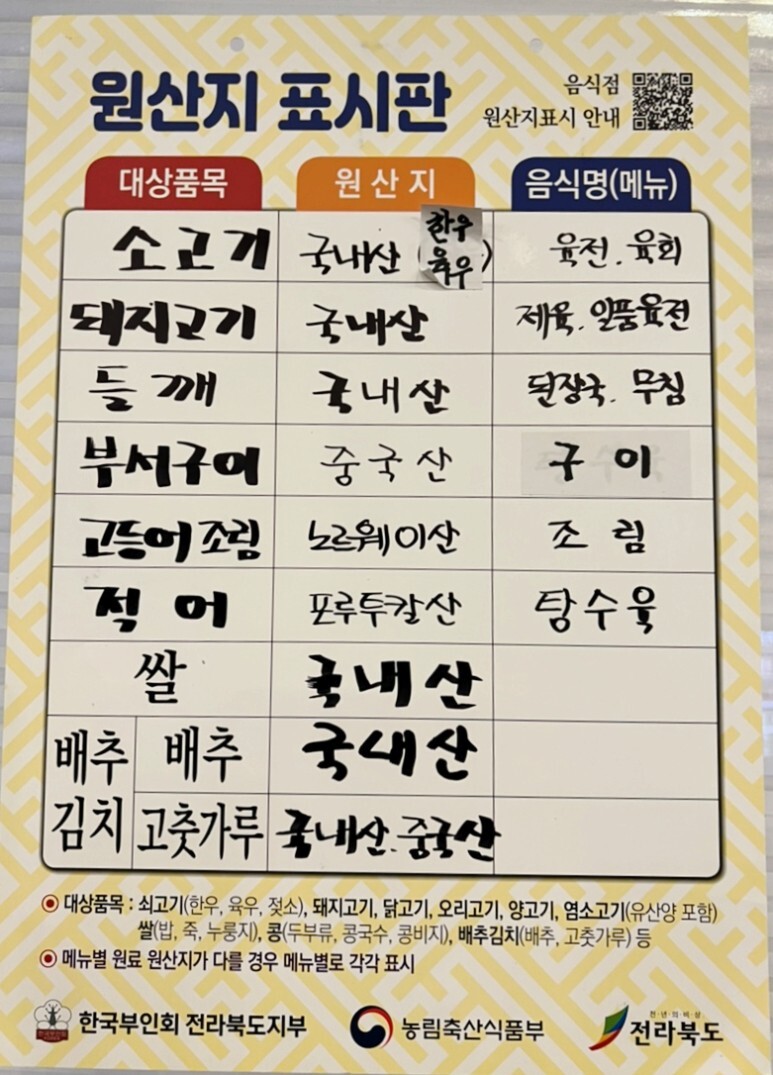 원산지 표시판
음식점
원산지표시 안내
대상품목 원산지 음식명(메뉴)
소고기 국내산 (한우 육우) 육전. 육회
돼지고기 국내산 제육. 일품육전
들깨 국내산 된장국. 무침
부서구이 중국산 구이
고등어조림 노르웨이산 조림
적어 포루투칼산 탕수육
쌀 국내산
배추김치 배추 국내산
고춧가루 국내산.중국산
대상품목 : 쇠고기(한우, 육우, 젖소), 돼지고기, 닭고기, 오리고기, 양고기, 염소고기(유산양 포함)
쌀(밥, 죽, 누룽지), 콩(두부류, 콩국수, 콩비지), 배추김치(배추, 고춧가루) 등
메뉴별 원료 원산지가 다를 경우 메뉴별로 각각 표시
한국부인회 전라북도지부 농림축산식품부 천년의비상 전라북도